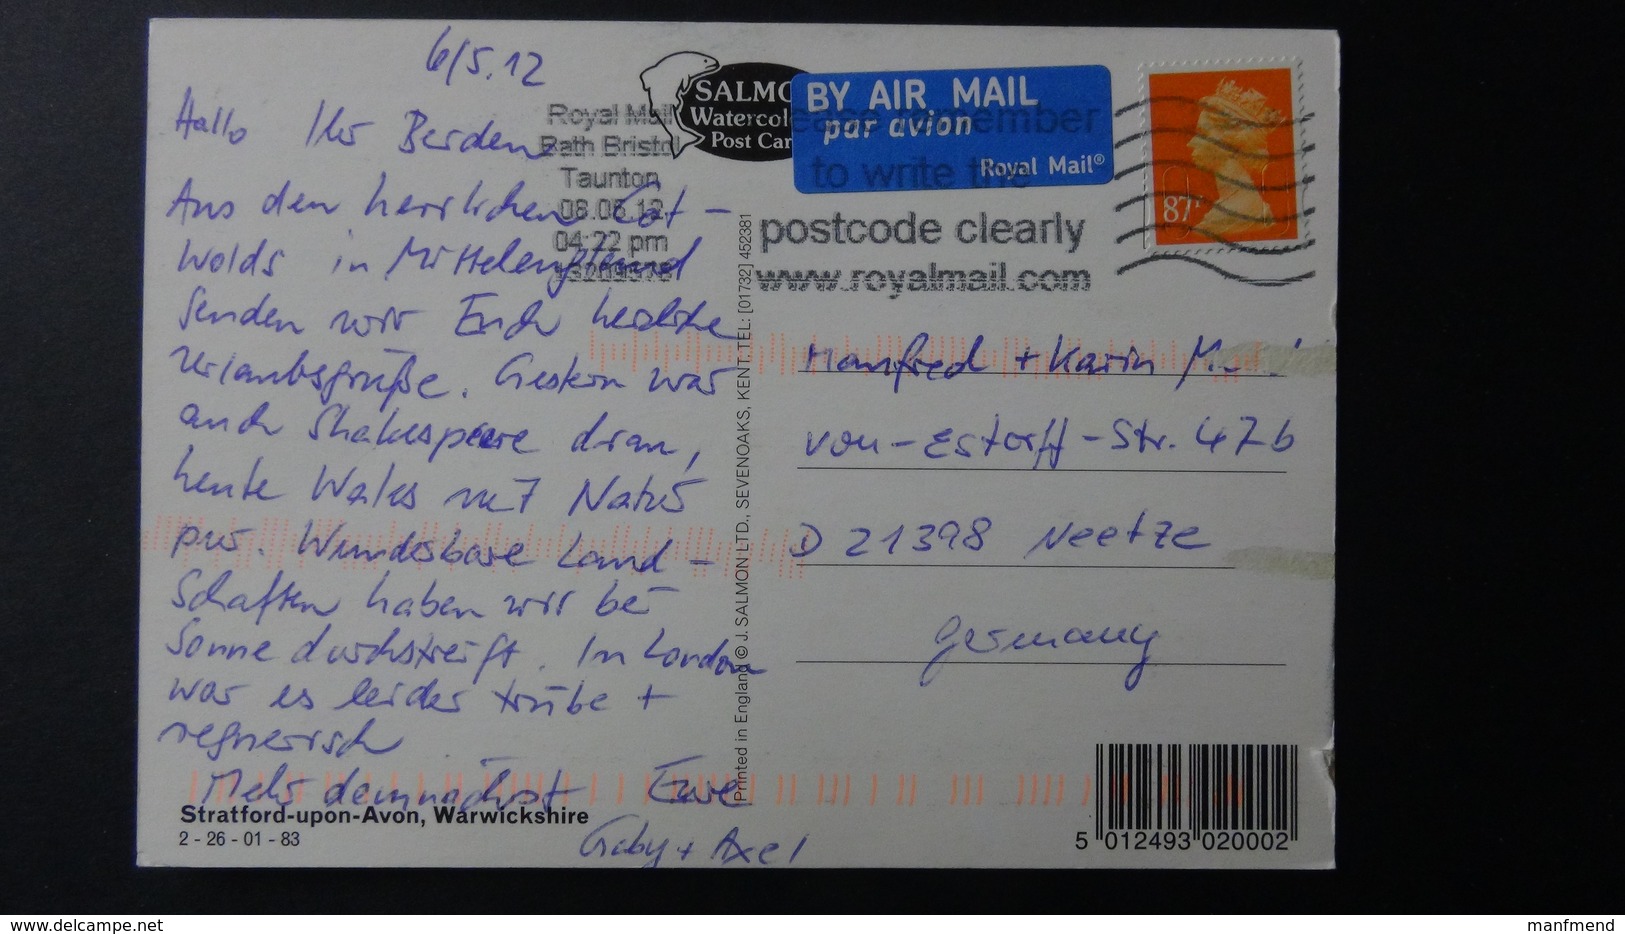 6/5.12
Hallo Ihr Beiden
Aus den herrlichen Cot-
wolds in Mittelengland
senden wir Euch herzliche
Urlaubsgrüße. Gestern war
auch Shakespeare dran,
heute Wales mit Natur
pur. Wunderbare Land-
schaften haben wir bei
Sonne durchstreift. In London
war es leider trübe +
regnerisch
Mehr demnächst Eure
Gaby + Axel
Stratford-upon-Avon, Warwickshire
2 - 26 - 01 - 83
Royal Mail
Bath Bristol
Taunton
04:22 pm
SALMO
Watercolo
Post Car
BY AIR MAIL
par avion
Royal Mail®
to write the
postcode clearly
www.royalmail.com
87P
Printed in England © J. SALMON LTD., SEVENOAKS, KENT. TEL: [01732] 452381
Manfred + Karin M
von-Estorff-Str. 47b
D 21398 Neetze
Germany
5 012493 020002
delcampe.net
manfmend